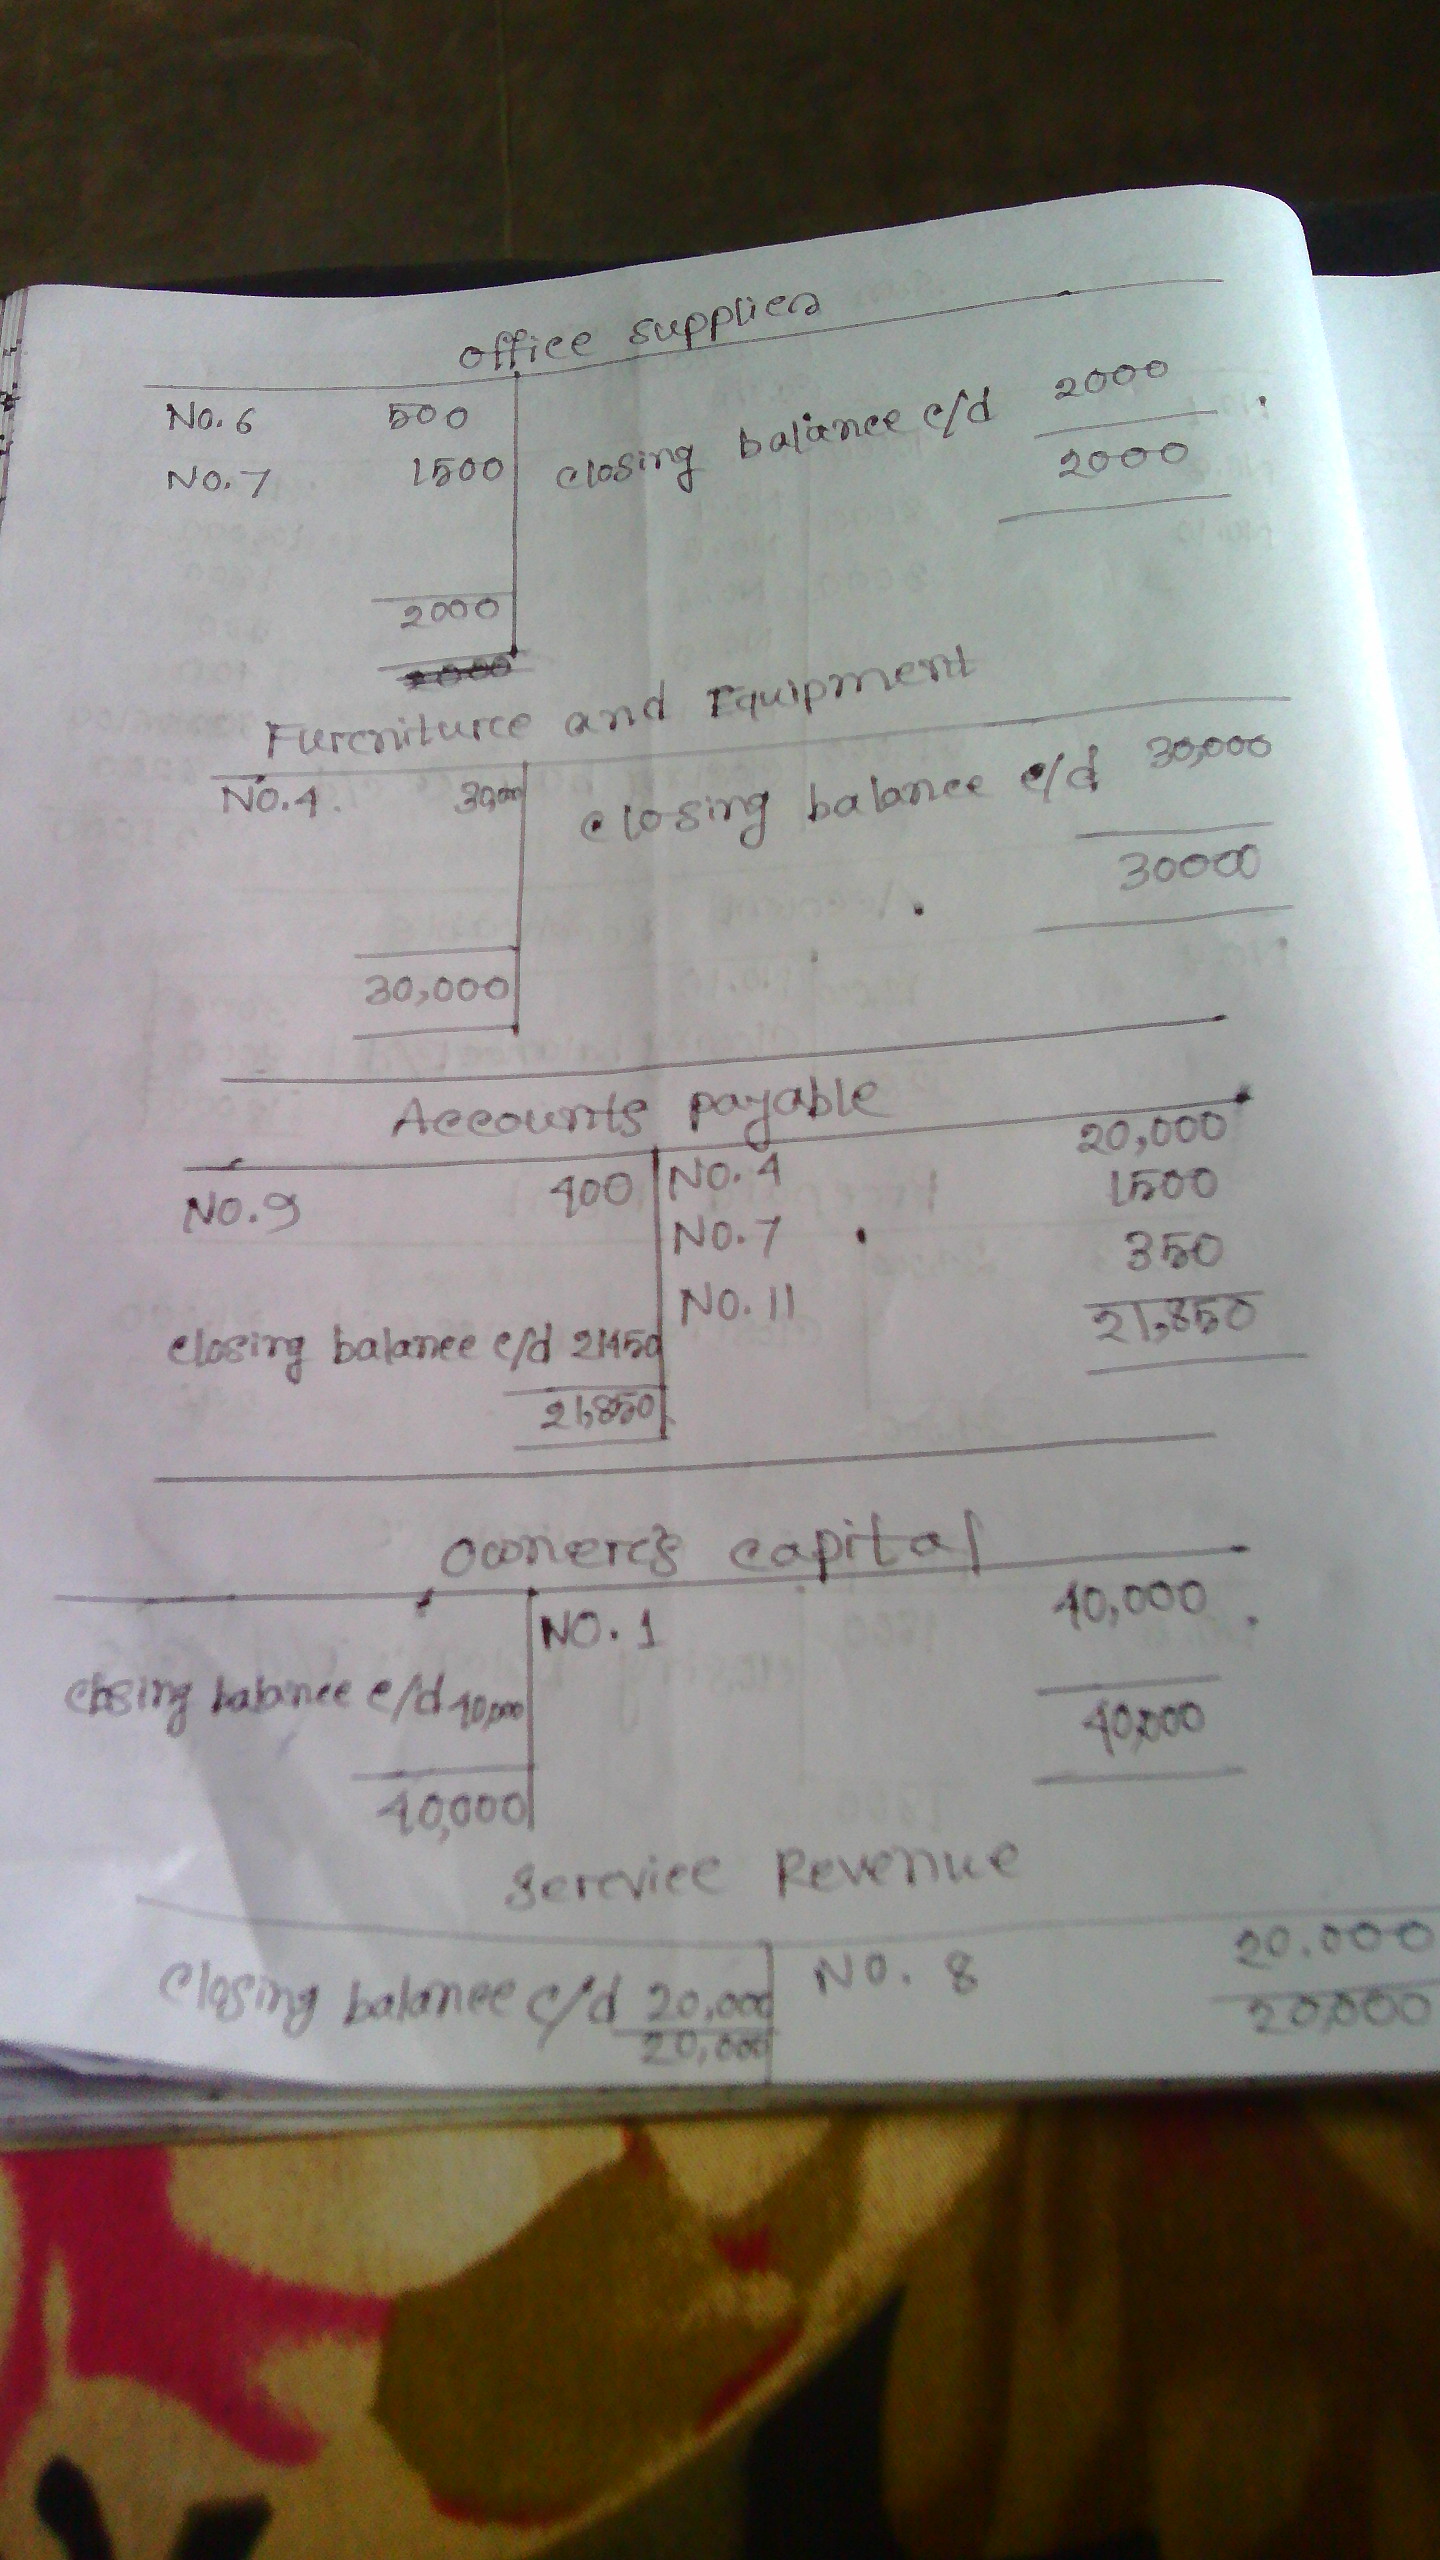 office supplies
No.6 500
No.7 1500 closing balance c/d 2000
2000
2000
Furniture and Equipment
No.4. 30,000 closing balance c/d 30,000
30000
30,000
Accounts payable
No.9 400 NO.4 20,000
NO.7 1500
NO.11 350
closing balance c/d 21450 21,850
21,850
Owner's capital
NO.1 40,000
closing balance c/d 40,000 40,000
40,000
Service Revenue
Closing balance c/d 20,000 NO. 8 20.000
20,000 20,000